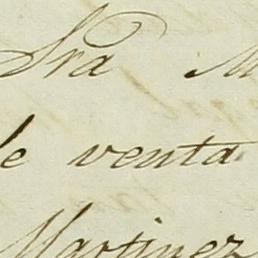 Sra M
de venta
Martinez